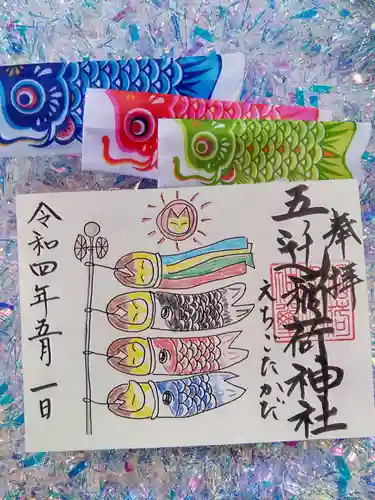 奉拝
五斗稲荷神社
えちごたかだ
令和四年五月一日